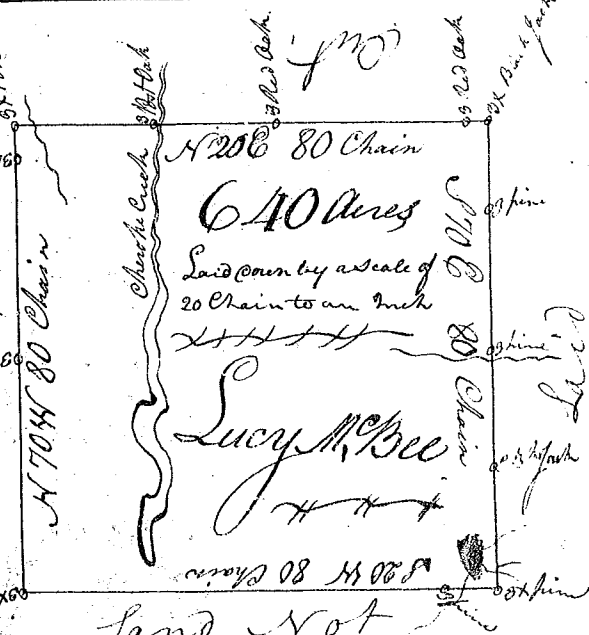 3 Post Oak
3 Red Oak
3 Red Oak
3X Black Jack
Out
N 20 E 80 Chain
640 Acres
Laid down by a scale of
20 Chain to an Inch
Lucy McBee
Cherokee Creek
N 70 W 80 Chain
S 70 E 80 Chain
3 pine
3 pine
B Jack
Laid
S 20 W 80 Chain
3X pine
pine
Land Not